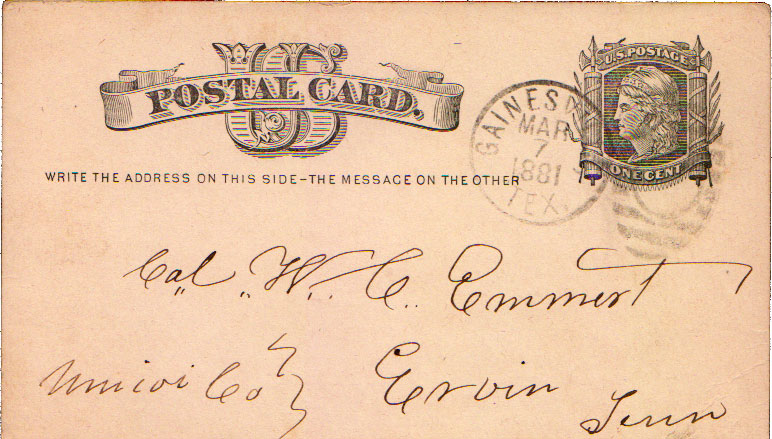 US
POSTAL CARD.
U.S. POSTAGE
ONE CENT
GAINESV
MAR
7
1881
TEX.
WRITE THE ADDRESS ON THIS SIDE-THE MESSAGE ON THE OTHER
Col. W. C. Emmert
Unicoi Co } Ervin
Tenn